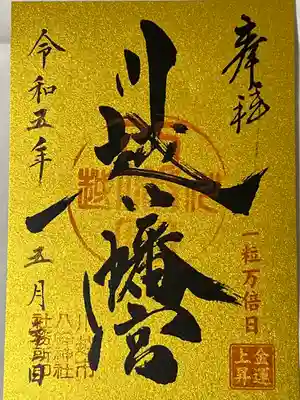 奉拝
一粒万倍日
金運
上昇
川越八幡宮
令和五年五月
日
川越市
八幡神社
社務所印